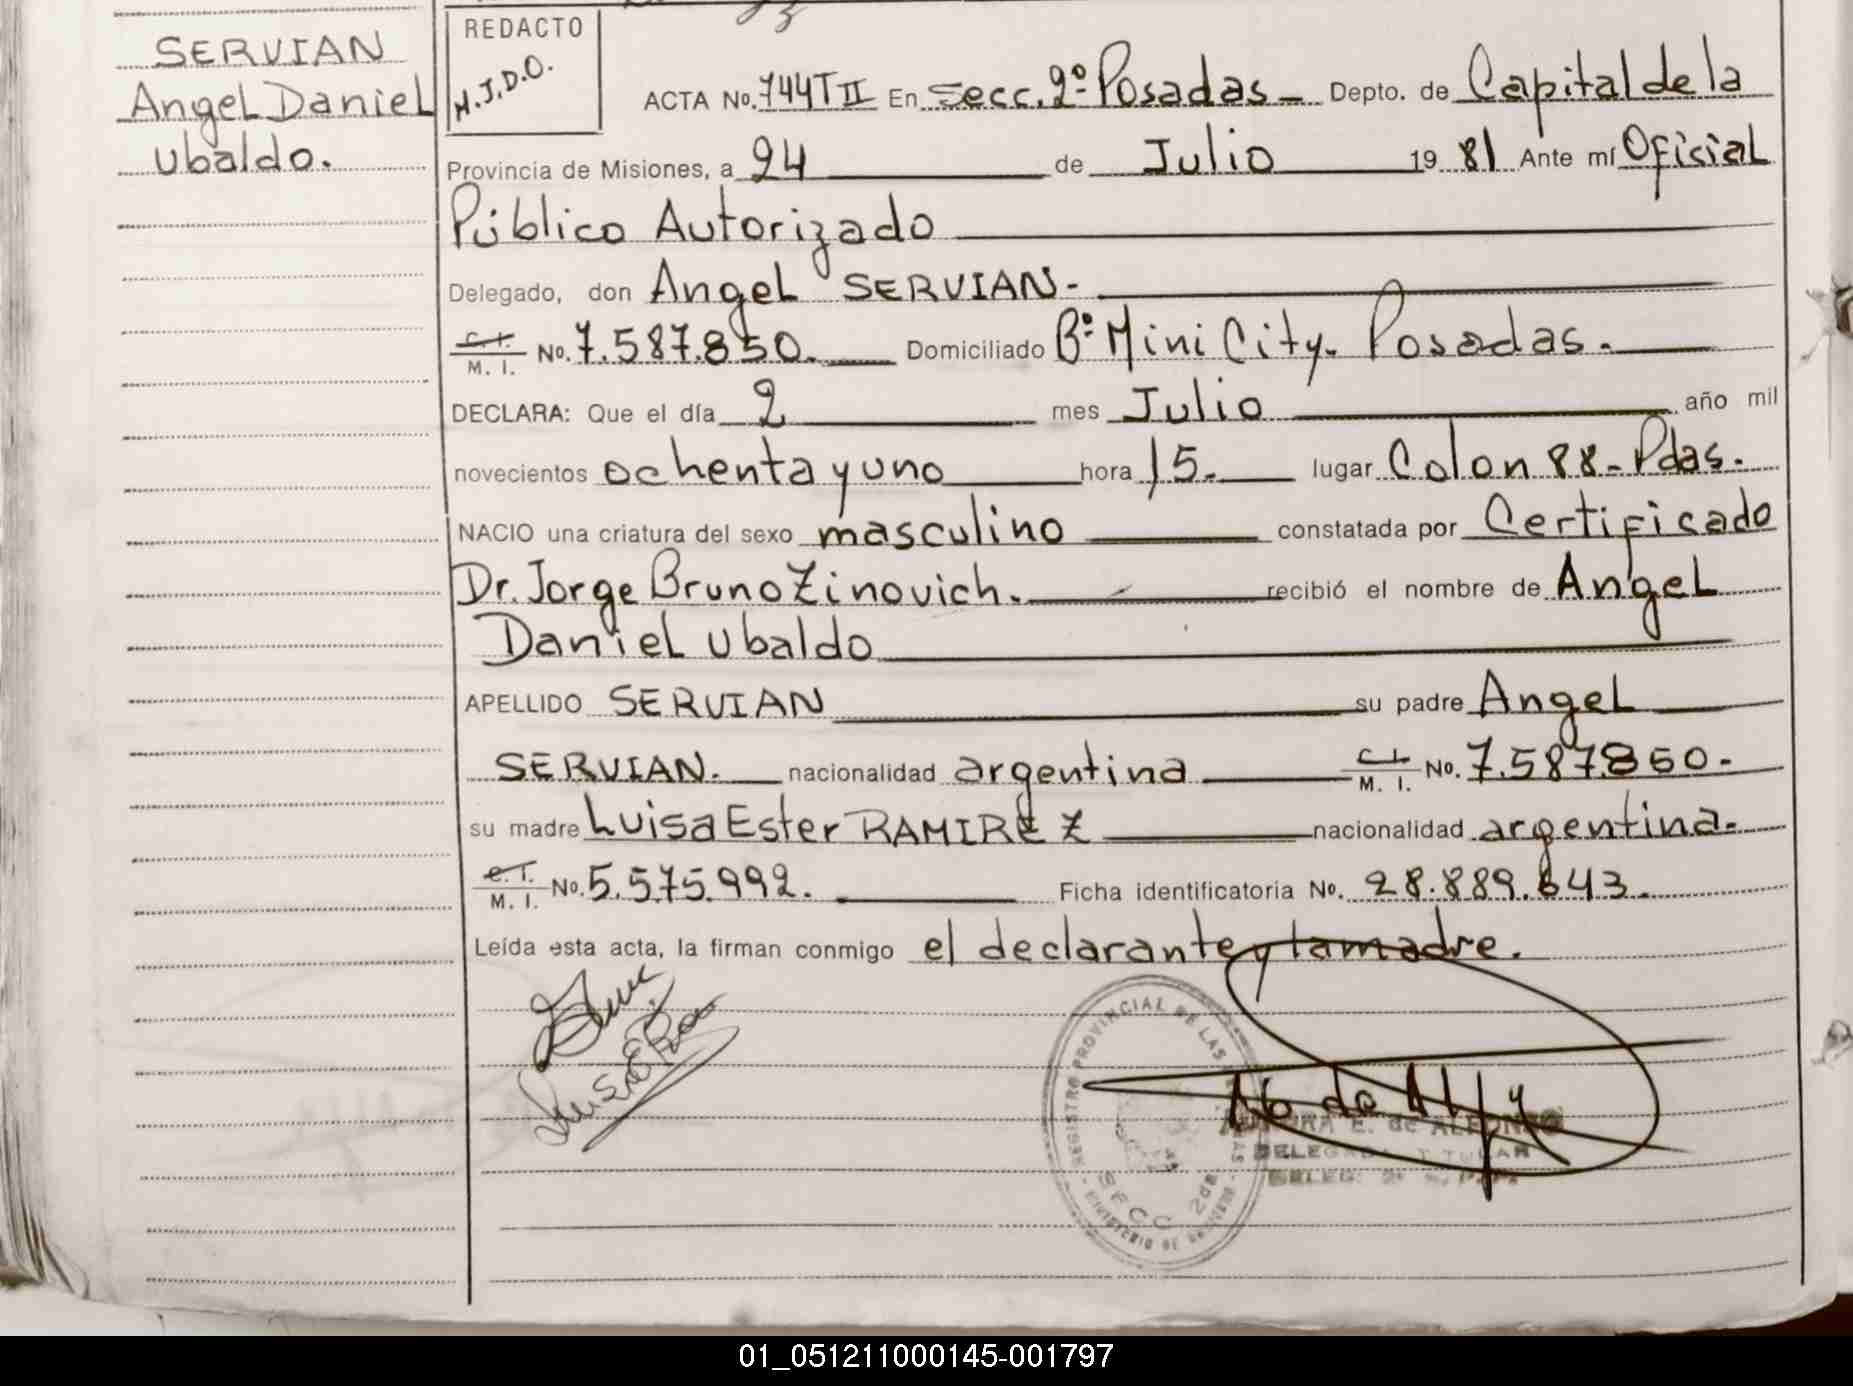 SERVIAN
Angel Daniel
Ubaldo.
REDACTO
M.J.D.O.
ACTA No. 744 T II En Secc. 2º Posadas - Depto. de Capital de la
Provincia de Misiones, a 24 de Julio 19 81 Ante mí Oficial
Público Autorizado
Delegado, don Angel SERVIAN.-
C. I. M. I. No. 7.587.850. Domiciliado Bº Mini City. Posadas.
DECLARA: Que el día 2 mes Julio año mil
novecientos ochenta y uno hora 15. lugar Colon 88 - Pdas.
NACIO una criatura del sexo masculino constatada por Certificado
Dr. Jorge Bruno Zinovich. recibió el nombre de Angel
Daniel Ubaldo
APELLIDO SERVIAN su padre Angel
SERVIAN. nacionalidad argentina C. I. M. I. No. 7.587.850.-
su madre Luisa Ester RAMIREZ nacionalidad argentina.
C. I. M. I. No. 5.575.992. Ficha identificatoria No. 28.889.643.
Leída esta acta, la firman conmigo el declarante y la madre.
REGISTRO PROVINCIAL DE LAS
SECC 2da
MINISTERIO DE
E. de ALFONSO
DELEGADA TITULAR
01_051211000145-001797